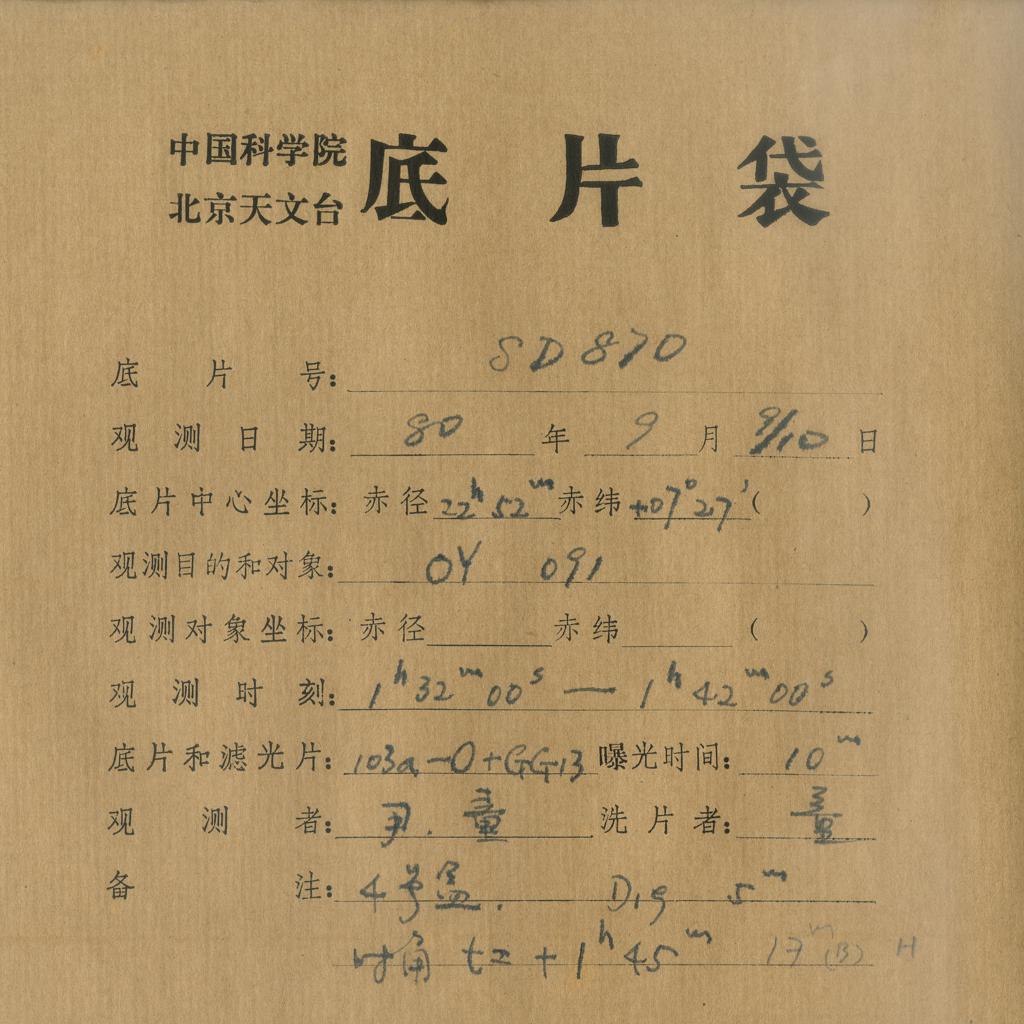 中国科学院
北京天文台
底片袋
底片号: SD870
观测日期: 80年9月9/10日
底片中心坐标: 赤径22h52m赤纬+07°27'( )
观测目的和对象: OY 091
观测对象坐标: 赤径 赤纬 ( )
观测时刻: 1h32m00s — 1h42m00s
底片和滤光片: 103a-O+GG13 曝光时间: 10m
观测者: 尹. 童 洗片者: 童
备注: 4号盒. D19 5m
时角 t= +1h45m 17m(B) H